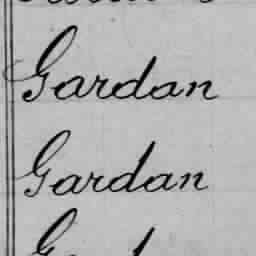 Gardan
Gardan